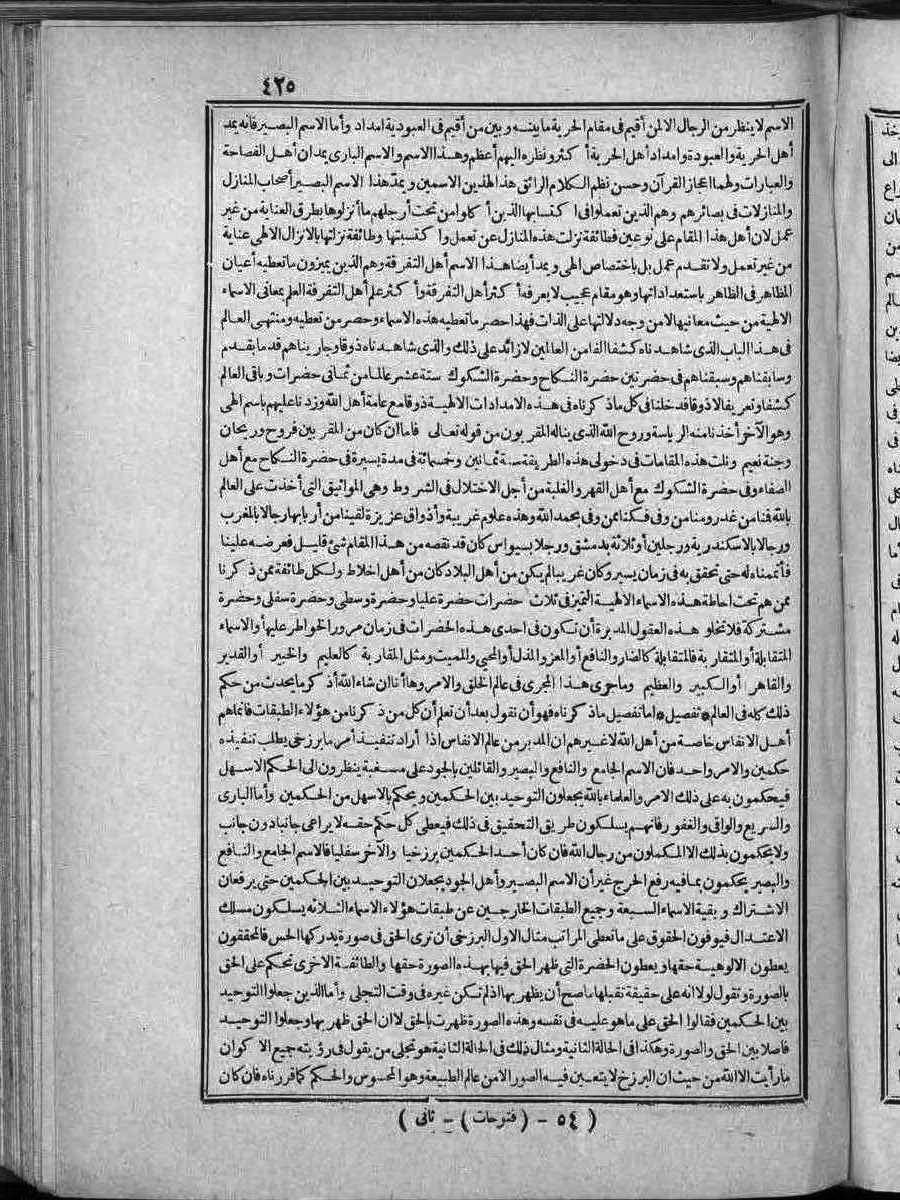 ٤٢٥
الاسم لا ينظر من الرجال الا لمن أقيم فى مقام الحرية ما بينه وبين من أقيم فى العبودية امداد وأما الاسم البصير فانه يمد
أهل الحرية والعبودة وامداد أهل الحرية أكثر ونظره اليهم أعظم وهذا الاسم والاسم البارى يمدان أهل الفصاحة
والعبارات ولهما اعجاز القرآن وحسن نظم الكلام الرائق هذا لهذين الاسمين ويمدّ هذا الاسم البصير أصحاب المنازل
والمنازلات فى بصائرهم وهم الذين تعملوا فى اكتسابها الذين أكلوا من تحت أرجلهم ما أنزلوها بطرق العناية من غير
عمل لان أهل هذا المقام على نوعين فطائفة نزلت هذه المنازل عن تعمل واكتسبتها وطائفة نزلتها بالانزال الالهى عناية
من غير تعمل ولا تقدم عمل بل باختصاص الهى ويمد أيضا هذا الاسم أهل التفرقة وهم الذين يميزون ما تعطيه أعيان
المظاهر فى الظاهر باستعداداتها وهو مقام عجيب لا يعرفه أكثر أهل التفرقة وأكثر علم أهل التفرقة العلم بمعانى الاسماء
الالهية من حيث معانيها لا من وجه دلالتها على الذات فهذا حصر ما تعطيه هذه الاسماء وحصر من تعطيه ومنتهى العالم
فى هذا الباب الذى شاهدناه كشفا ألفا من العالمين لا زائد على ذلك والذى شاهدناه ذوقا وجاريناهم قدما بقدم
وسابقناهم وسبقناهم فى حضرتين حضرة النكاح وحضرة الشكوك ستة عشر عالما من ثمانى حضرات وباقى العالم
كشفا وتعريفا لا ذوقا فدخلنا فى كل ما ذكرناه فى هذه الامدادات الالهية ذوقا مع عامة أهل الله وزدنا عليهم باسم الهى
وهو الآخر أخذنا منه الرياسة وروح الله الذى يناله المقربون من قوله تعالى فاما ان كان من المقربين فروح وريحان
وجنة نعيم ونلت هذه المقامات فى دخولى هذه الطريقة سنة ثمانين وخمسمائة فى مدة يسيرة فى حضرة النكاح مع أهل
الصفاء وفى حضرة الشكوك مع أهل القهر والغلبة من أجل الاختلال فى الشروط وهى المواثيق التى أخذت على العالم
بالله فمنا من غدر ومنا من وفى فكنا ممن وفى بحمد الله وهذه علوم غريبة وأذواق عزيزة لقينا من أربابها رجالا بالمغرب
ورجالا بالاسكندرية ورجلين أو ثلاثة بدمشق ورجلا بسيواس كان قد نقصه من هذا المقام شئ قليل فعرضه علينا
فأتممناه له حتى تحقق به فى زمان يسير وكان غريبا لم يكن من أهل البلاد كان من أهل اخلاط ولكل طائفة ممن ذكرنا
ممن هم تحت احاطة هذه الاسماء الالهية التميز فى ثلاث حضرات حضرة عليا وحضرة وسطى وحضرة سفلى وحضرة
مشتركة فلا تخلو هذه العقول المدبرة أن تكون فى احدى هذه الحضرات فى زمان مرور الخواطر عليها والاسماء
المتقابلة أو المتقاربة فالمتقابلة كالضار والنافع أو المعز والمذل أو المحيى والمميت ومثل المقاربة كالعليم والخبير أو القدير
والقاهر أو الكبير والعظيم وما جرى هذا المجرى فى عالم الخلق والامر وها أنا ان شاء الله أذكر ما يحدث من حكم
ذلك كله فى العالم ۞ تفصيل ۞ اما تفصيل ما ذكرناه فهو أن نقول بعد أن تعلم أن كل من ذكرنا من هؤلاء الطبقات فانما هم
أهل الانفاس خاصة من أهل الله لا غيرهم ان المدبر من عالم الانفاس اذا أراد تنفيذ أمر ما برزخى يطلب تنفيذه
حكمين والامر واحد فان الاسم الجامع والنافع والبصير والقائلين بالجود على مسغبة ينظرون الى الحكم الاسهل
فيحكمون به على ذلك الامر والعلماء بالله يجعلون التوحيد بين الحكمين ويحكم بالاسهل من الحكمين وأما البارى
والسريع والواقى والغفور فانهم يسلكون طريق التحقيق فى ذلك فيعطى كل حكم حقه لا يراعى جانبا دون جانب
ولا يحكمون بذلك الا المكملون من رجال الله فان كان أحد الحكمين برزخيا والآخر سفليا فالاسم الجامع والنافع
والبصير يحكمون بما فيه رفع الحرج غير أن الاسم البصير وأهل الجود يجعلان التوحيد بين الحكمين حتى يرفعان
الاشتراك وبقية الاسماء السبعة وجميع الطبقات الخارجين عن طبقات هؤلاء الاسماء الثلاثة يسلكون مسلك
الاعتدال فيوفون الحقوق على ما تعطى المراتب مثال الاول البرزخى أن ترى الحق فى صورة يدركها الحس فالمحققون
يعطون الالوهية حقها ويعطون الحضرة التى ظهر الحق فيها بهذه الصورة حقها والطائفة الاخرى تحكم على الحق
بالصورة وتقول لولا انه على حقيقة نقبلها ما صح أن يظهر بها اذ لم تكن غيره فى وقت التجلى وأما الذين جعلوا التوحيد
بين الحكمين فقالوا الحق على ما هو عليه فى نفسه وهذه الصورة ظهرت بالحق لا ان الحق ظهر بها وجعلوا التوحيد
فاصلا بين الحق والصورة وهكذا فى الحالة الثانية ومثال ذلك فى الحالة الثانية هو تجلى من يقول فى رؤيته جميع الاكوان
ما رأيت الا الله من حيث ان البرزخ لا يتعين فيه الصور الا من عالم الطبيعة وهو المحسوس والحكم كما قررناه فان كان
( ٥٤ - (فتوحات) - ثانى )